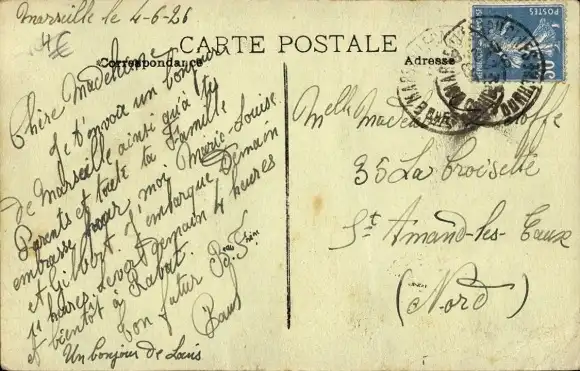 Marseille le 4-6-26
4 €
CARTE POSTALE
Correspondance
Adresse
POSTES
Chère Madeleine
Je t'envoie un bonjour
de Marseille ainsi qu'à tes
Parents et toute ta Famille
embrasse pour moi Marie-Louise
et Gilbert j'embarque Demain
heures devant demain 4 heures
et bientôt à Rabat.
Ton futur Beau Frère
Paul
Un bonjour de Louis
Melle
35 La Croisette
St Amand-les-Eaux
(Nord)